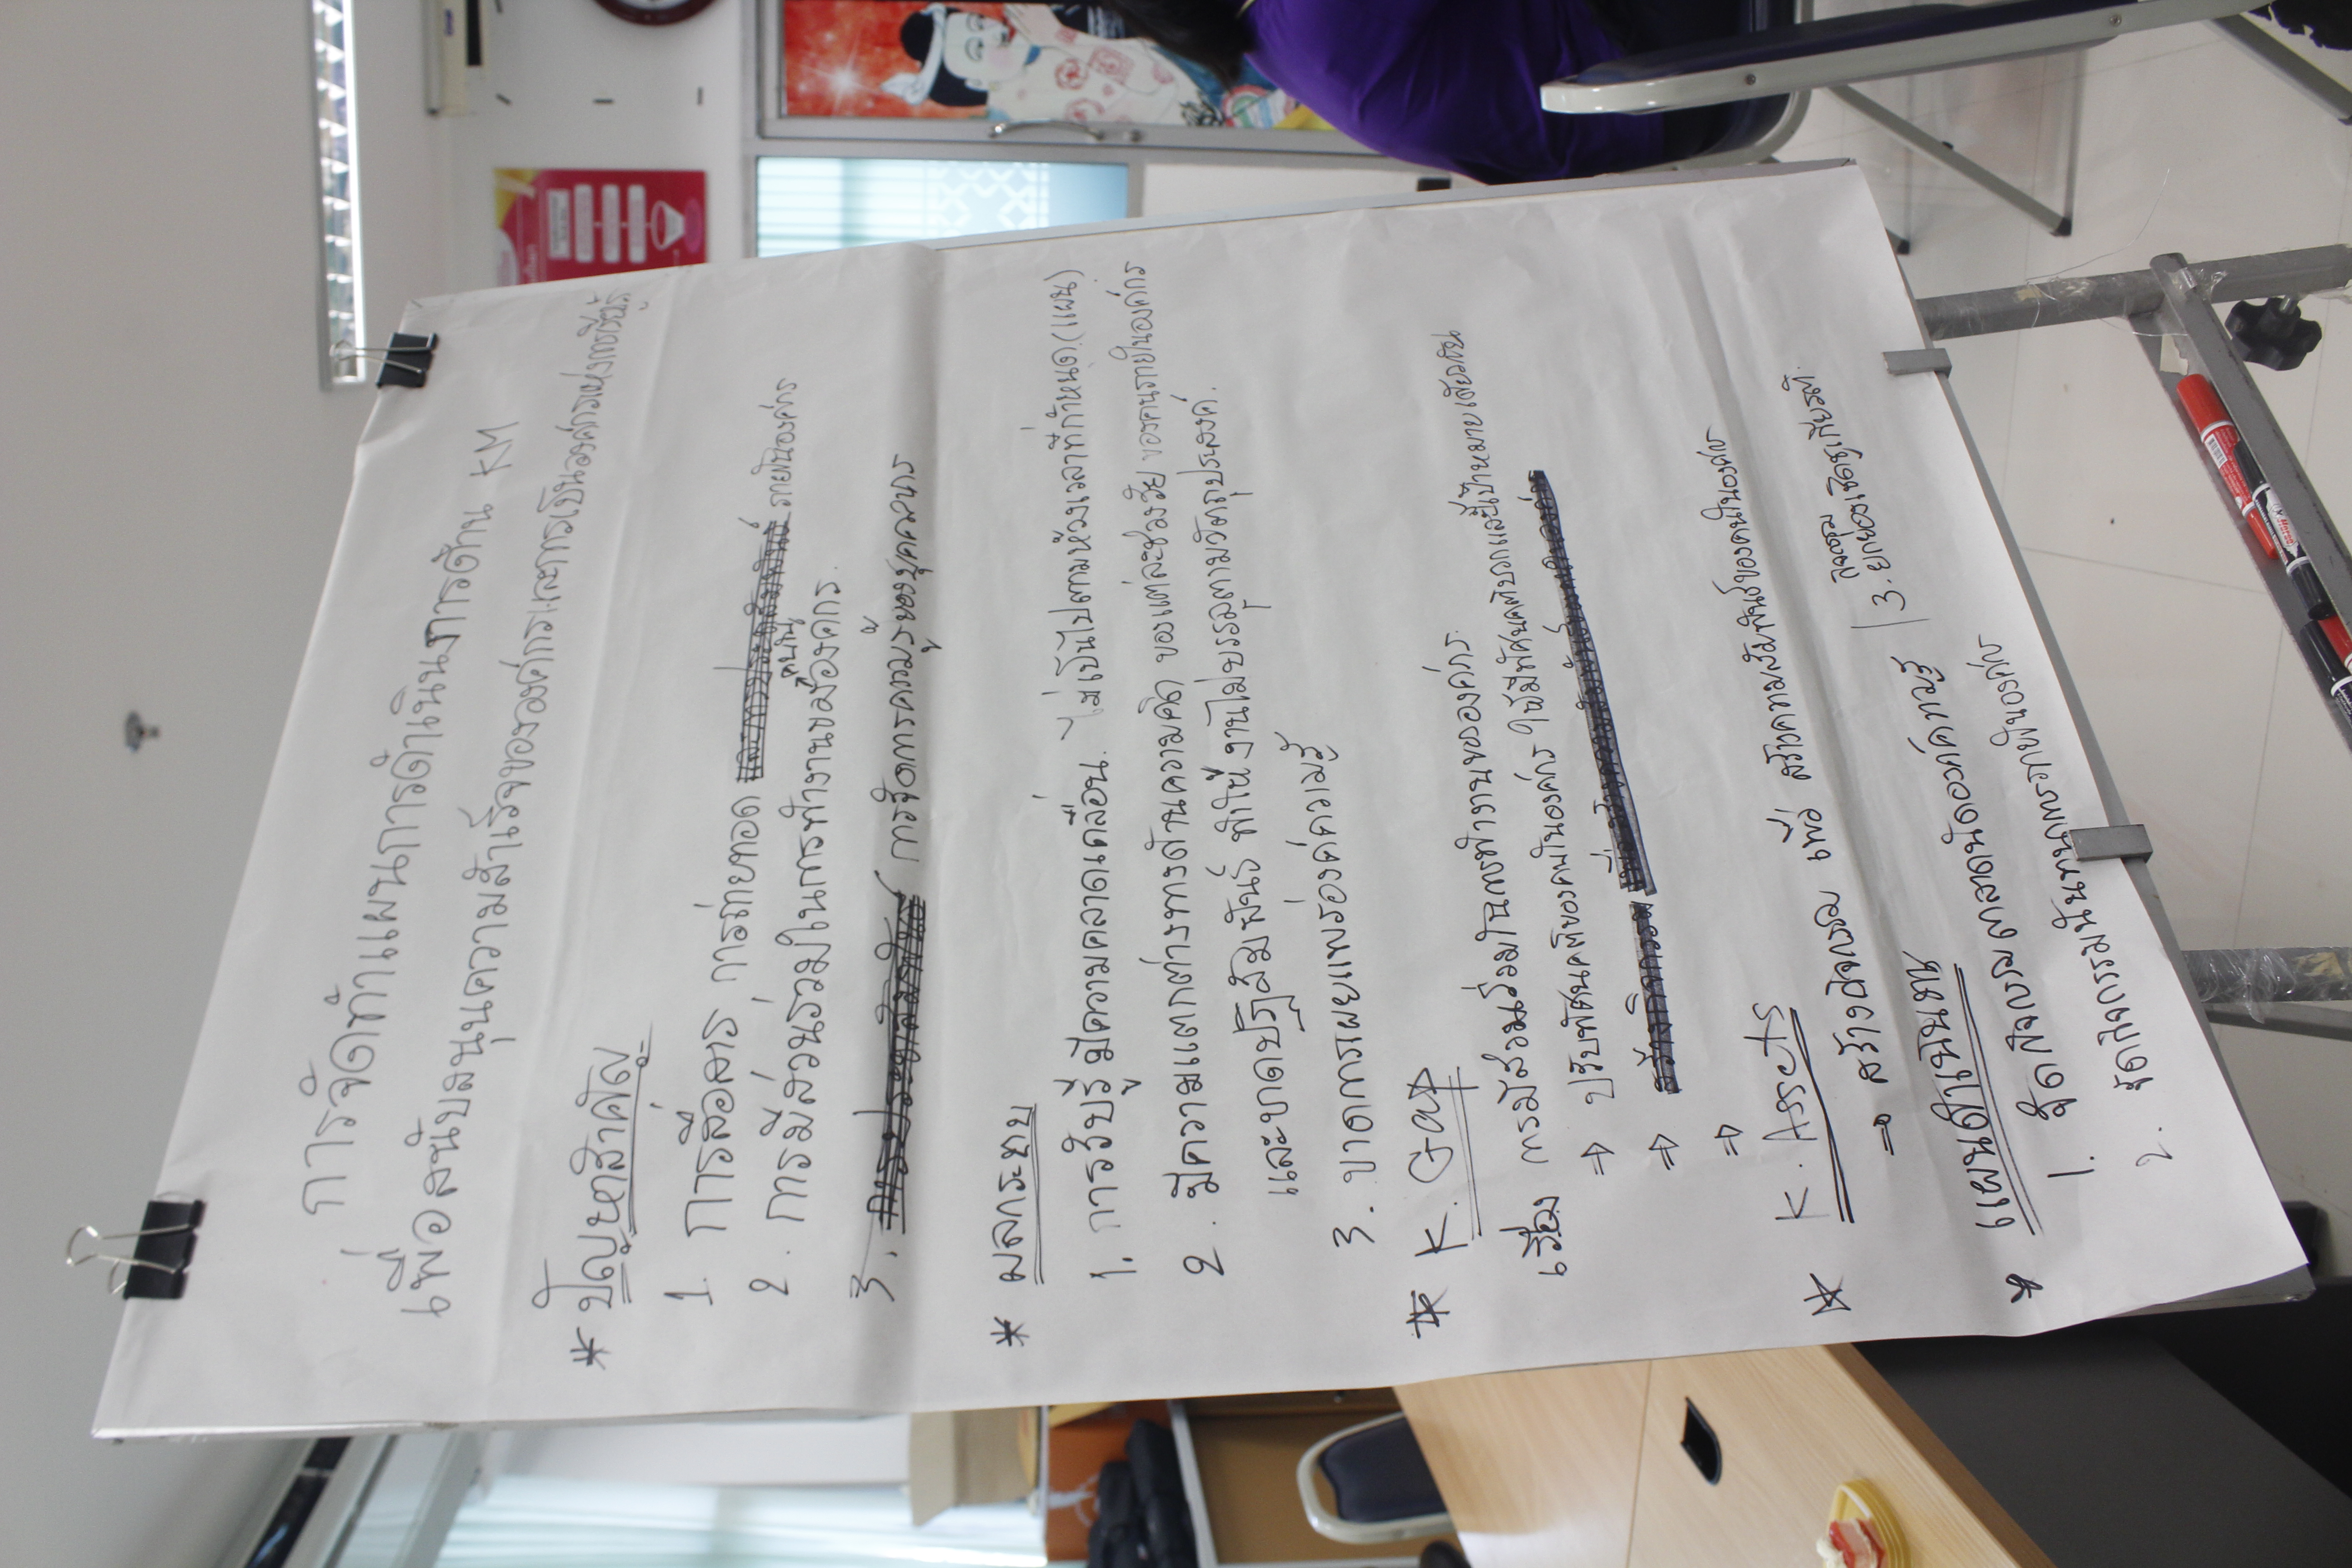 การจัดทำแผนการดำเนินงานด้าน KM
เพื่อสนับสนุนความสำเร็จขององค์กรและการเป็นองค์การแห่งการเรียนรู้
* ปัญหาสำคัญ
1. การสื่อสาร การถ่ายทอด ภายในองค์กร
2. การมีส่วนร่วมในการทำงานขององค์กร.
3. การจัดการความรู้ของบุคลากร
* ผลกระทบ
1. การรับรู้มีความคลาดเคลื่อน ไม่เป็นไปตามห้วงเวลาที่กำหนด (แผน)
2. มีความแตกต่างทางด้านความคิด ของแต่ละช่วงวัย ของคนภายในองค์กร
และขาดปฏิสัมพันธ์ ทำให้งานไม่บรรลุตามวัตถุประสงค์.
3. ขาดการเผยแพร่องค์ความรู้
* K. Gap
เรื่อง การมีส่วนร่วมในการทำงานขององค์กร.
⇒ ปรับทัศนคติของคนในองค์กร ให้มีทัศนคติบวกและมีเป้าหมายเดียวกัน
⇒
⇒
* K. Assets
⇒ สร้างกิจกรรม เพื่อ สร้างความสัมพันธ์ของคนในองค์กร
* แผนดำเนินงาน
1. จัดกิจกรรมตลาดนัดองค์ความรู้ 3. ยกย่องเชิดชูเกียรติ.
2. จัดกิจกรรมสันทนาการภายในองค์กร